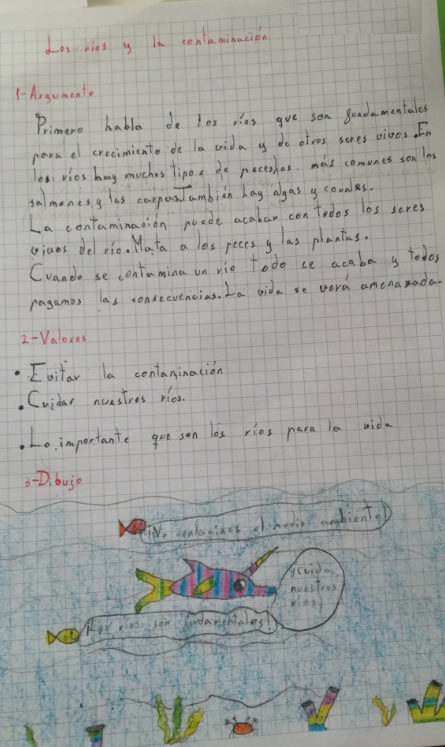 Los ríos y la contaminación
1-Argumento
Primero habla de los ríos que son fundamentales
para el crecimiento de la vida y de otros seres vivos. En
los ríos hay muchos tipos de peces, los más comunes son los
salmones y las carpas. También hay algas y corales.
La contaminación puede acabar con todos los seres
vivos del río. Mata a los peces y las plantas.
Cuando se contamina un río todo se acaba y todos
pagamos las consecuencias. La vida se verá amenazada.
2-Valores
• Evitar la contaminación
• Cuidar nuestros ríos.
• Lo importante que son los ríos para la vida
3-Dibujo
¡No contamines el medio ambiente!
¡Cuida
nuestros
ríos!
¡Los ríos son fundamentales!